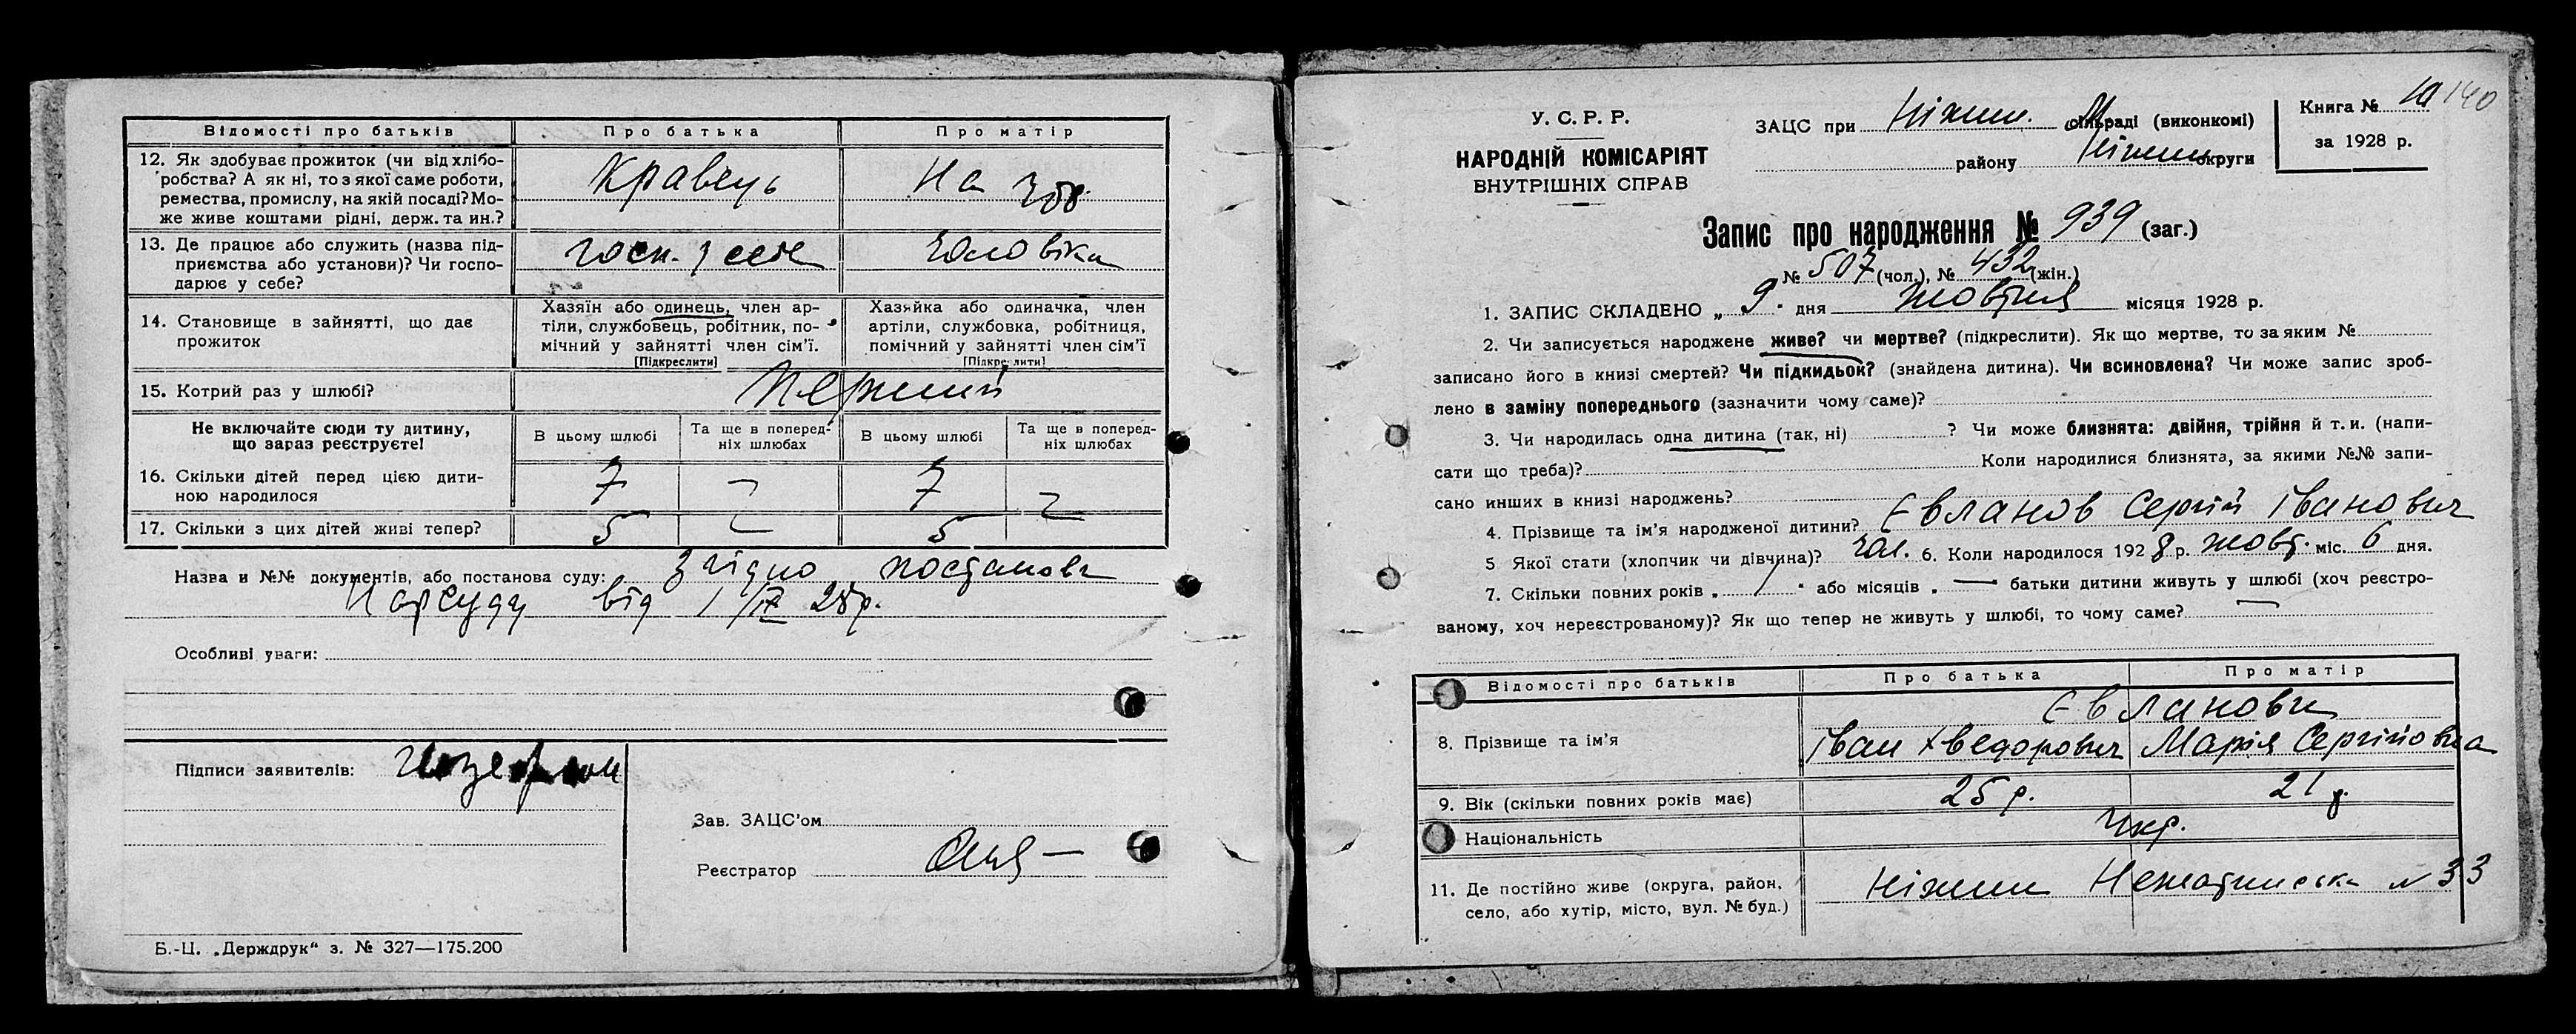 Відомості про батьків Про батька Про матір
12. Як здобуває прожиток (чи від хлібо-
робства? А як ні, то з якої саме роботи,
ремества, промислу, на якій посаді? Мо-
же живе коштами рідні, держ. та ин.?
Кравець На
13. Де працює або служить (назва під-
приємства або установи)? Чи госпо-
дарює у себе?
госп. у себе чоловіка
14. Становище в зайнятті, що дає
прожиток
Хазяїн або одинець, член ар-
тіли, службовець, робітник, по-
мічний у зайнятті член сім'ї.
[Підкреслити]
Хазяйка або одиначка, член
артіли, службовка, робітниця,
помічний у зайнятті член сім'ї
[Підкреслити]
15. Котрий раз у шлюбі? Перший
Не включайте сюди ту дитину,
що зараз реєструєте!
В цьому шлюбі
Та ще в поперед-
ніх шлюбах
В цьому шлюбі
Та ще в поперед-
ніх шлюбах
16. Скільки дітей перед цією дити-
ною народилося
7 – 7 –
17. Скільки з цих дітей живі тепер? 5 – 5
Назва и №№ документів, або постанова суду: Згідно постанови
Нарсуду від 1/IX 28р.
Особливі уваги:
Підписи заявителів:
Зав. ЗАЦС'ом
Реєстратор
Б.-Ц. „Держдрук“ з. № 327—175.200
У. С. Р. Р.
НАРОДНІЙ КОМІСАРІЯТ
ВНУТРІШНІХ СПРАВ
ЗАЦС при Ніжин. М сільраді (виконкомі)
району Ніжин округи
Книга № 10 140
за 1928 р.
Запис про народження № 939 (заг.)
№ 507 (чол.), № 432 (жін.)
1. ЗАПИС СКЛАДЕНО „ 9 “ дня жовтня місяця 1928 р.
2. Чи записується народжене живе? чи мертве? (підкреслити). Як що мертве, то за яким №
записано його в книзі смертей? Чи підкидьок? (знайдена дитина). Чи всиновлена? Чи може запис зроб-
лено в заміну попереднього (зазначити чому саме)?
3. Чи народилась одна дитина (так, ні) ? Чи може близнята: двійня, трійня й т. и. (напи-
сати що треба)? Коли народилися близнята, за якими №№ запи-
сано инших в книзі народжень?
4. Прізвище та ім'я народженої дитини? Євланов Сергій Іванович
5 Якої стати (хлопчик чи дівчина)? чол. 6. Коли народилося 1928 р. жовт. міс. 6 дня.
7. Скільки повних років „ / “ або місяців „ — “ батьки дитини живуть у шлюбі (хоч реєстро-
ваному, хоч нереєстрованому)? Як що тепер не живуть у шлюбі, то чому саме? —
Відомості про батьків Про батька Про матір
Євланови
8. Прізвище та ім'я Іван Хведорович Марія Сергіївна
9. Вік (скільки повних років має) 25 р. 21 р.
Національність Укр.
11. Де постійно живе (округа, район,
село, або хутір, місто, вул. № буд.)
Ніжин № 33